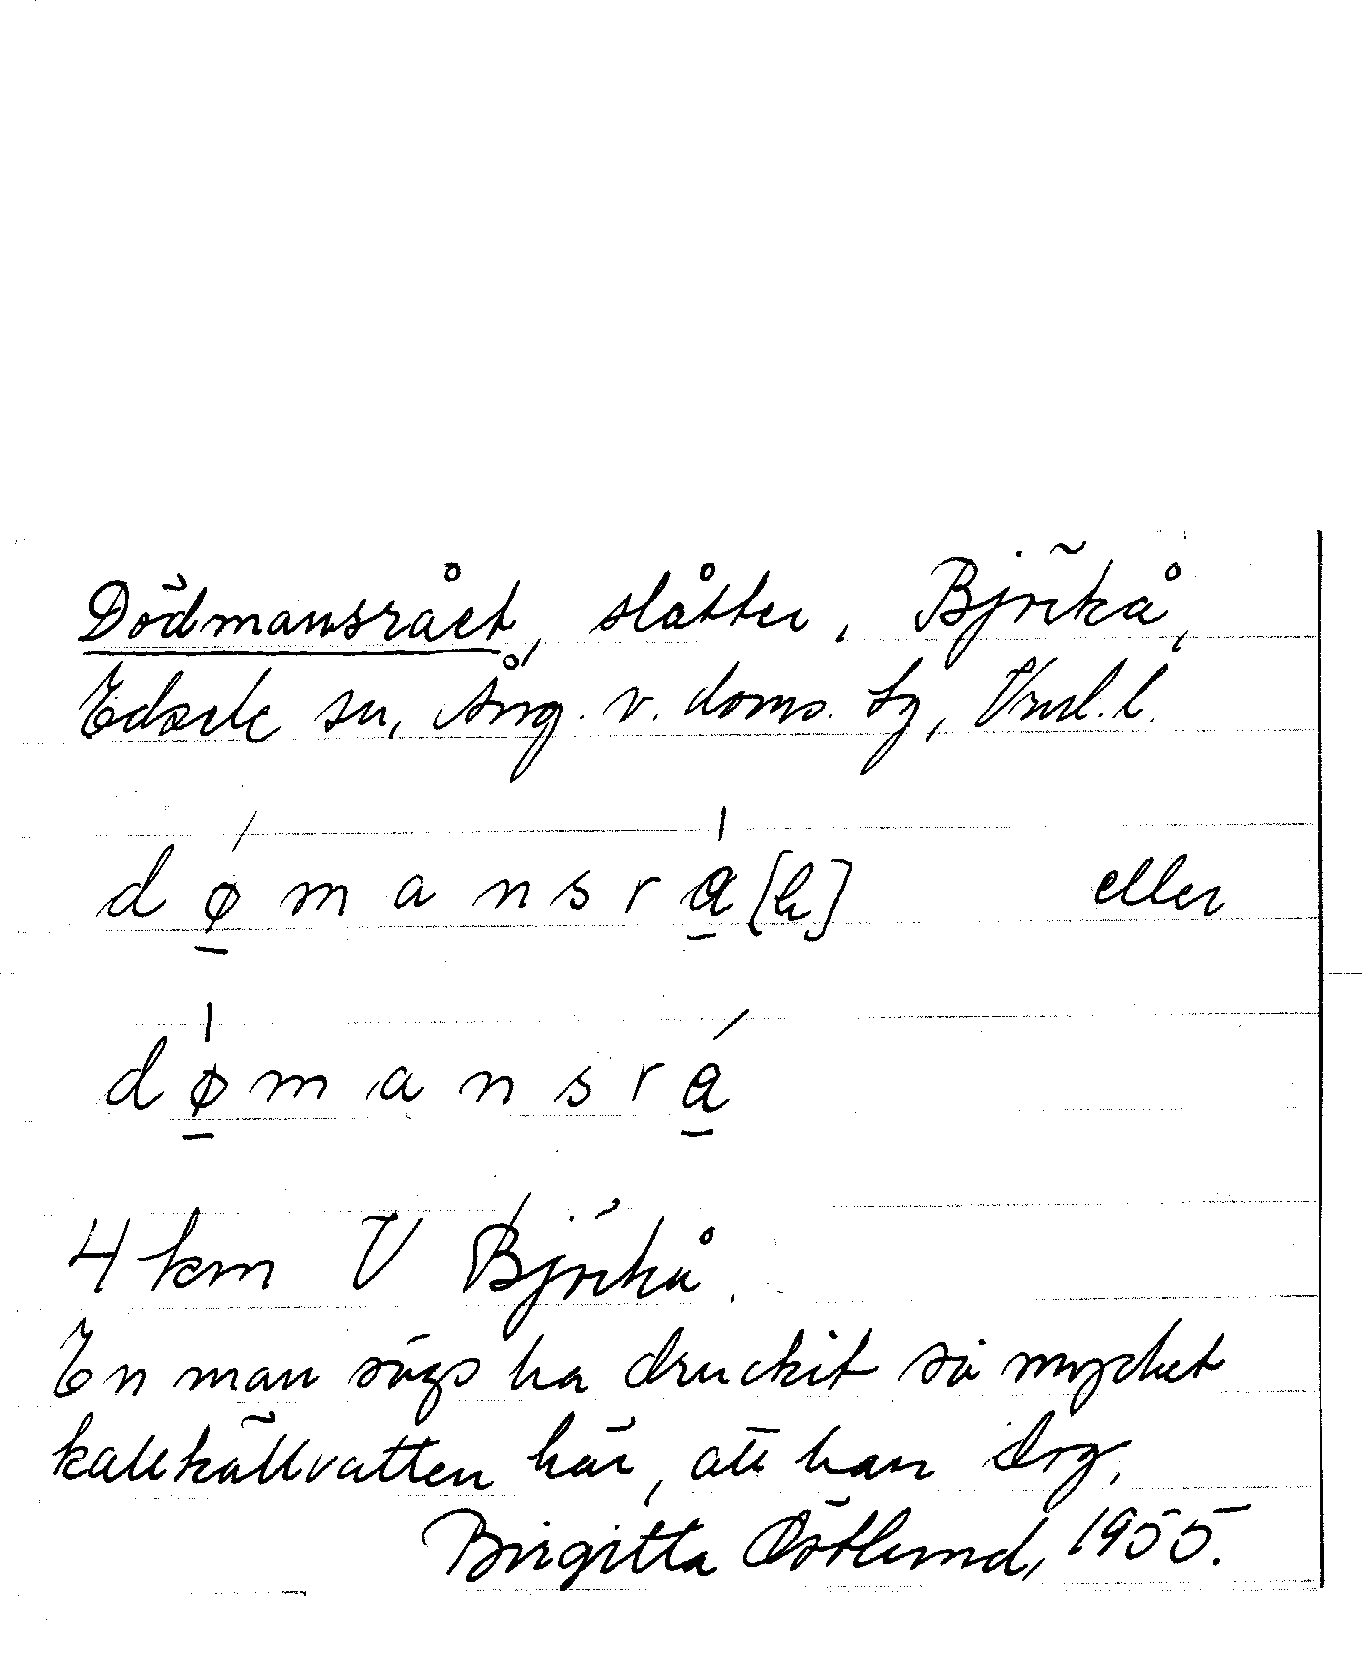 Dödmansrået, slåtter, Björkå,
Edsele sn, Ång. v. doms. tg, Vnrl. l.
dø̱mansra̱[h] eller
dø̱mansra̱
4 km V Björkå.
En man sägs ha druckit så mycket
kallkällvatten här, att han dog.
Birgitta Östlund, 1955.